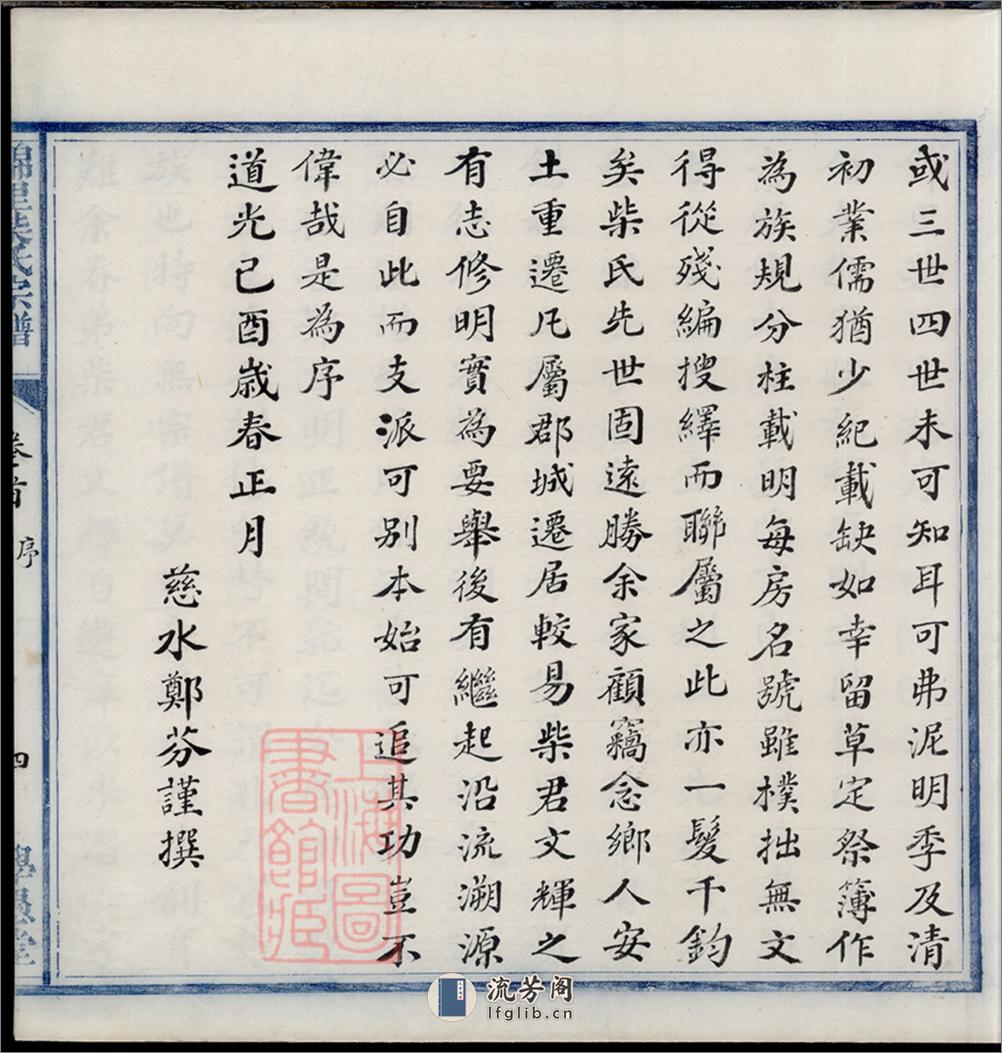 或三世四世未可知耳可弗泥明季及清
初業儒猶少紀載缺如幸留草定祭簿作
為族規分柱載明每房名號雖樸拙無文
得從殘編搜繹而聯屬之此亦一髮千鈞
矣柴氏先世固遠勝余家顧竊念鄉人安
土重遷凡屬郡城遷居較易柴君文輝之
有志修明實為要舉後有繼起沿流溯源
必自此而支派可別本始可追其功豈不
偉哉是為序
道光己酉歲春正月
慈水鄭芬謹撰
氏宗譜
卷首
序
四
上海圖
書館藏
流芳阁
lfglib.cn